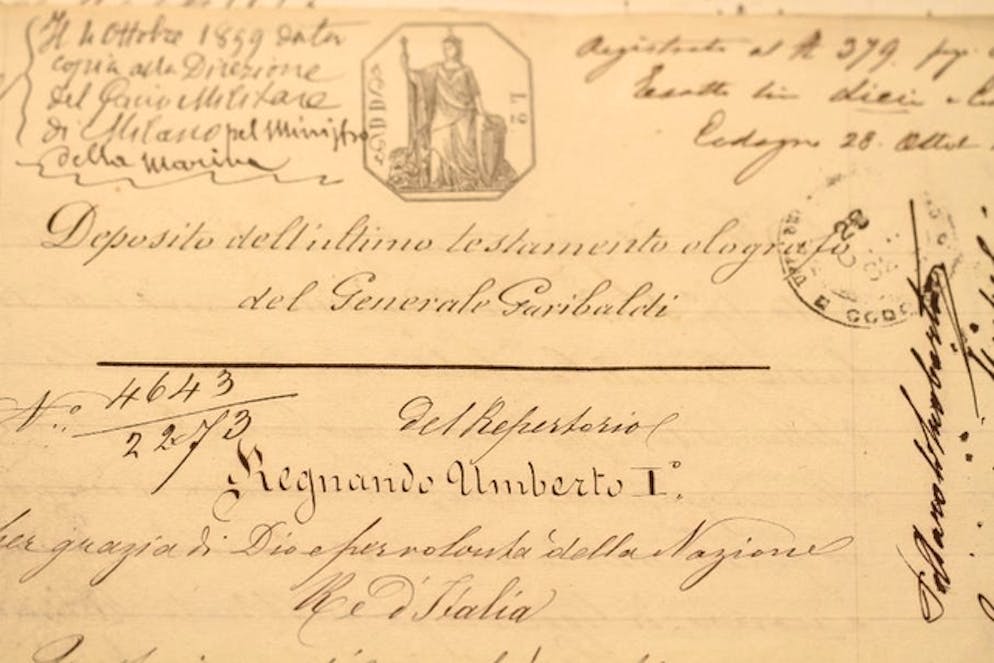 Il 4 Ottobre 1899 data
copia alla Direzione
del Genio Militare
di Milano pel Ministro
della Marina
L 2.
Registrato al N 379
Esatte lire dieci e
Codogno 28. Ottob
Deposito dell'ultimo testamento olografo
del Generale Garibaldi
28
E CODO
N.° 4643
2273
del Repertorio
Regnando Umberto I.°
per grazia di Dio e per volontà della Nazione
Re d'Italia